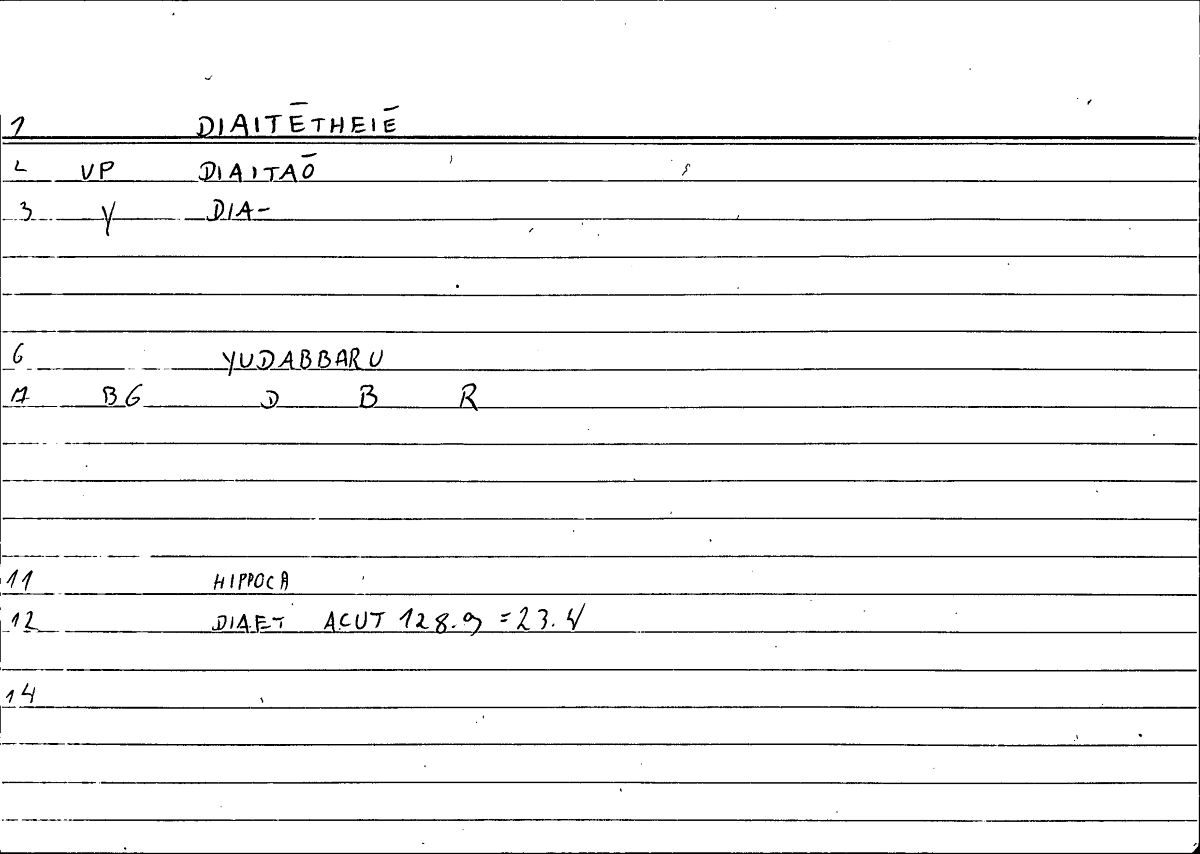 1 DIAITĒTHEIĒ
2 VP DIAITAŌ
3 Y DIA-
6 YUDABBARU
7 BG D B R
11 HIPPOCA
12 DIAET ACUT 128.9 = 23.4
14